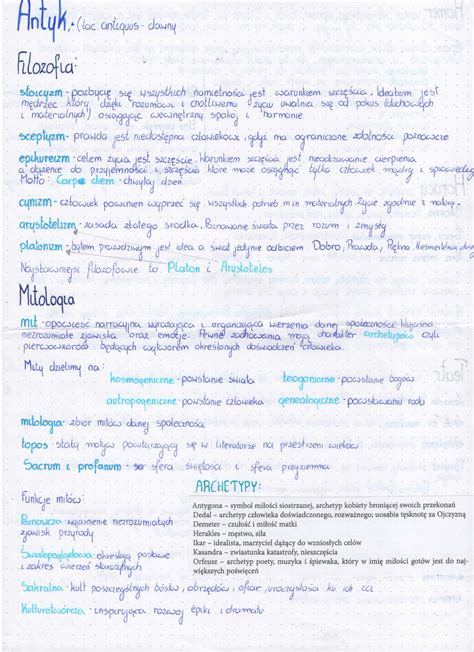 Antyk - (łac. antiquus - dawny
Filozofia:
stoicyzm - pozbycie się wszystkich namiętności jest warunkiem szczęścia. Ideałem jest
mędrzec, który dzięki rozumowi i cnotliwemu życiu uwalnia się od pokus (duchowych
i materialnych) osiągając wewnętrzny spokój i harmonię
sceptyzm - prawda jest niedostępna człowiekowi, gdyż ma ograniczone zdolności poznawcze
epikureizm - celem życia jest szczęście. Warunkiem szczęścia jest nieodczuwanie cierpienia
a dążenie do przyjemności i szczęścia które może osiągnąć tylko człowiek mądry i sprawiedliwy
Motto: Carpe diem - chwytaj dzień.
cynizm - człowiek powinien wyprzeć się wszystkich potrzeb m.in materialnych. Życie zgodnie z naturą.
arystotelizm - zasada złotego środka, Poznawanie świata przez rozum i zmysły
platonizm - bytem prawdziwym jest idea a świat jedynie odbiciem. Dobro, Prawda, Piękno.
Najsławniejsi filozofowie to Platon i Arystoteles
Mitologia
mit - opowieść narracyjna wyrażająca i organizująca wierzenia danej społeczności. Wyjaśnia
niezrozumiałe zjawiska oraz emocje. Pewne zachowania mają charakter archetypów czyli
pierwowzorów będących wytworem określonych doświadczeń człowieka.
Mity dzielimy na:
kosmogeniczne - powstanie świata teogoniczne - powstanie bogów
antropogeniczne - powstanie człowieka genealogiczne - powstawaniu rodu
mitologia - zbiór mitów danej społeczności
topos - stały motyw powtarzający się w literaturze na przestrzeni wieków
Sacrum i profanum - sfera świętości i sfera przyziemna
ARCHETYPY:
Antygona – symbol miłości siostrzanej, archetyp kobiety broniącej swoich przekonań
Dedal – archetyp człowieka doświadczonego, rozważnego; uosabia tęsknotę za Ojczyzną
Demeter – czułość i miłość matki
Herakles – męstwo, siła
Ikar – idealista, marzyciel dążący do wzniosłych celów
Kasandra – zwiastunka katastrofy, nieszczęścia
Orfeusz – archetyp poety, muzyka i śpiewaka, który w imię miłości gotów jest do naj-
większych poświęceń
Funkcje mitów:
Poznawcza - wyjaśnienie niezrozumiałych
zjawisk przyrody
Światopoglądowa - określają postawę
i zakres wierzeń starożytnych
Sakralna - kult poszczególnych bóstw, obrzędów, ofiar, uroczystości ku ich czci
Kulturotwórcza - inspirująca rozwój epiki i dramatu